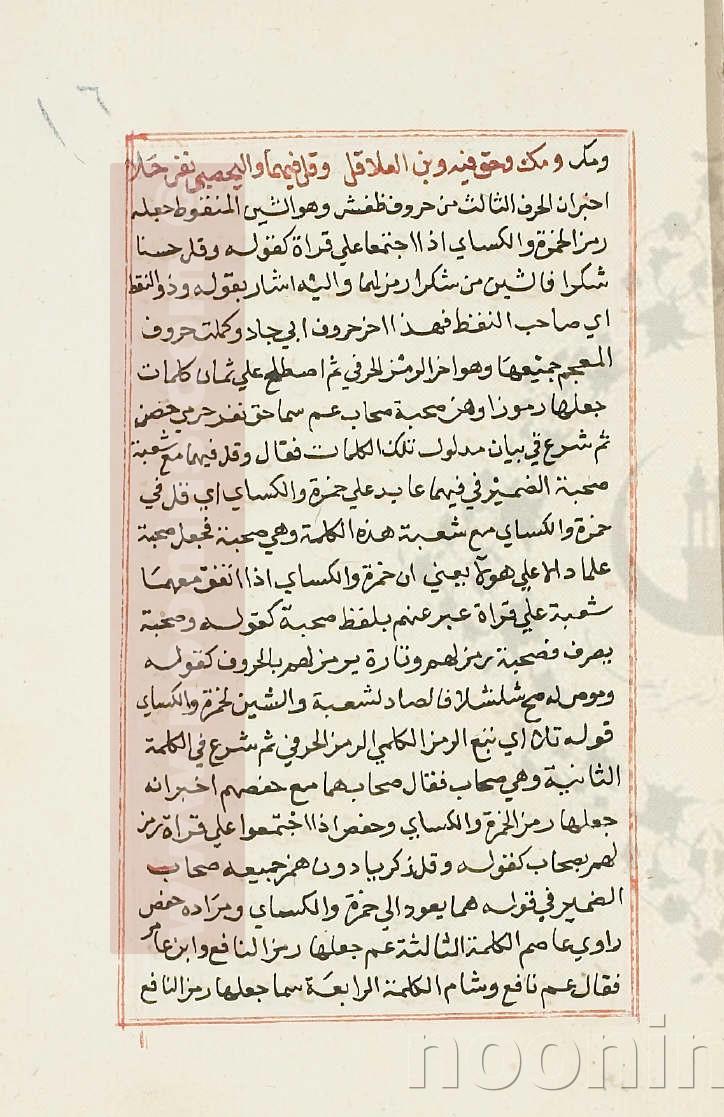 ١٦
ومك ومكث وحق فيه وبن العلا قل وقل فيهما واليحصبي نفر حلا
اخبر ان الحرف الثالث من حروف ظغش وهو الشين المنقوط جعله
رمز الحمزة والكساي اذا اجتمعا علي قراة كقوله وقل حسنا
شكرا فالشين من شكرا رمز لهما واليه اشار بقوله وذو النقط
اي صاحب النقط فهذا اخر حروف ابي جاد وكملت حروف
المعجم جميعها وهو اخر الرمز الحرفي ثم اصطلح علي ثمان كلمات
جعلها رموزا وهن صحبة صحاب عم سما حق نفر حرمي حصن
ثم شرع في بيان مدلول تلك الكلمات فقال وقل فيهما مع شعبة
صحبة الضمير في فيهما عايد علي حمزة والكساي اي قل في
حمزة والكساي مع شعبة هذه الكلمة وهي صحبة فجعل صحبة
علما دالا علي هولا يعني ان حمزة والكساي اذا اتفق معهما
شعبة علي قراة عبر عنهم بلفظ صحبة كقوله وصحبة
يصرف فصحبة رمز لهم وتارة يرمز لهم بالحروف كقوله
وموص له صح شلشلا فالصاد لشعبة والشين لحمزة والكساي
قوله تلا اي تبع الرمز الكلمي الرمز الحرفي ثم شرع في الكلمة
الثانية وهي صحاب فقال صحاب هما مع حفصهم اخبر انه
جعلها رمز الحمزة والكساي وحفص اذا اجتمعوا علي قراة رمز
لهم بصحاب كقوله وقل زكريا دون همز جميعه صحاب
الضمير في قوله هما يعود الي حمزة والكساي ومراده حفص
راوي عاصم الكلمة الثالثة عم جعلها رمزا لنافع وابن عامر
فقال عم نافع وشام الكلمة الرابعة سما جعلها رمز النافع
noonin